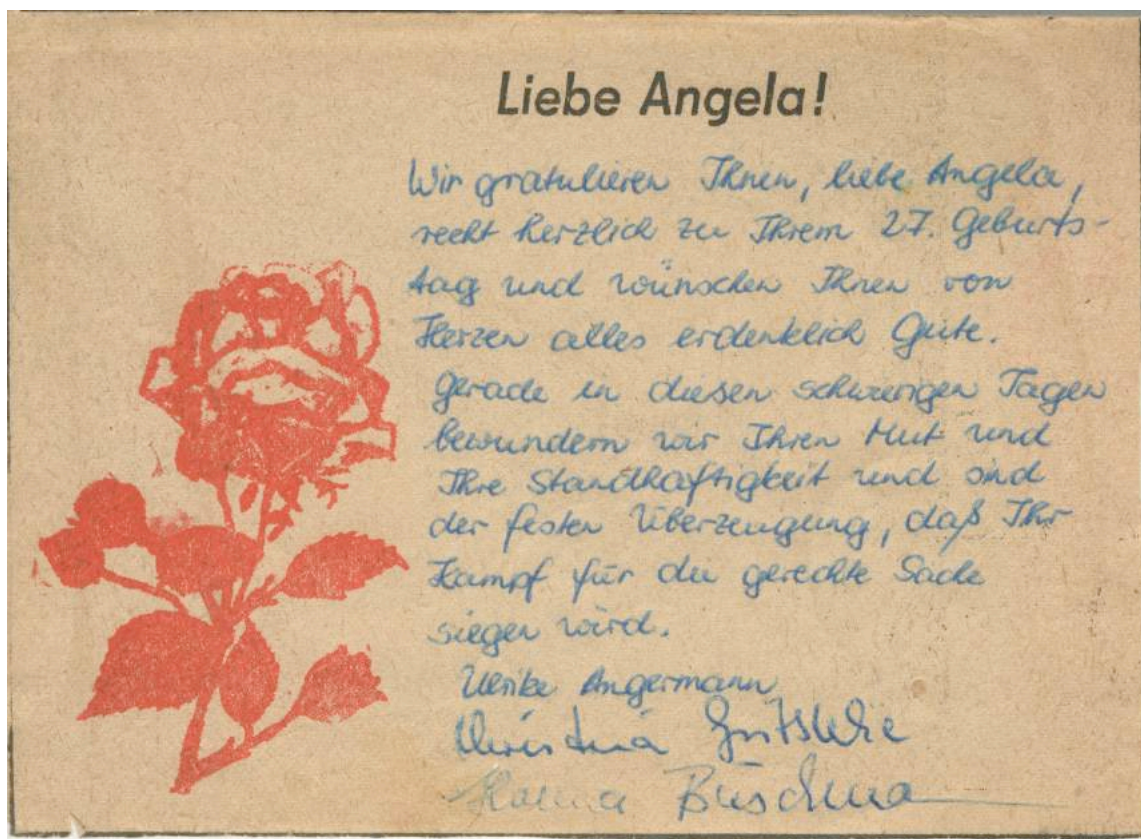 Liebe Angela!
Wir gratulieren Ihnen, liebe Angela,
recht herzlich zu Ihrem 27. Geburts-
tag und wünschen Ihnen von
Herzen alles erdenklich Gute.
Gerade in diesen schwierigen Tagen
bewundern wir Ihren Mut und
Ihre Standhaftigkeit und sind
der festen Überzeugung, daß Ihr
Kampf für die gerechte Sache
siegen wird.
Ulrike Angermann
Christina